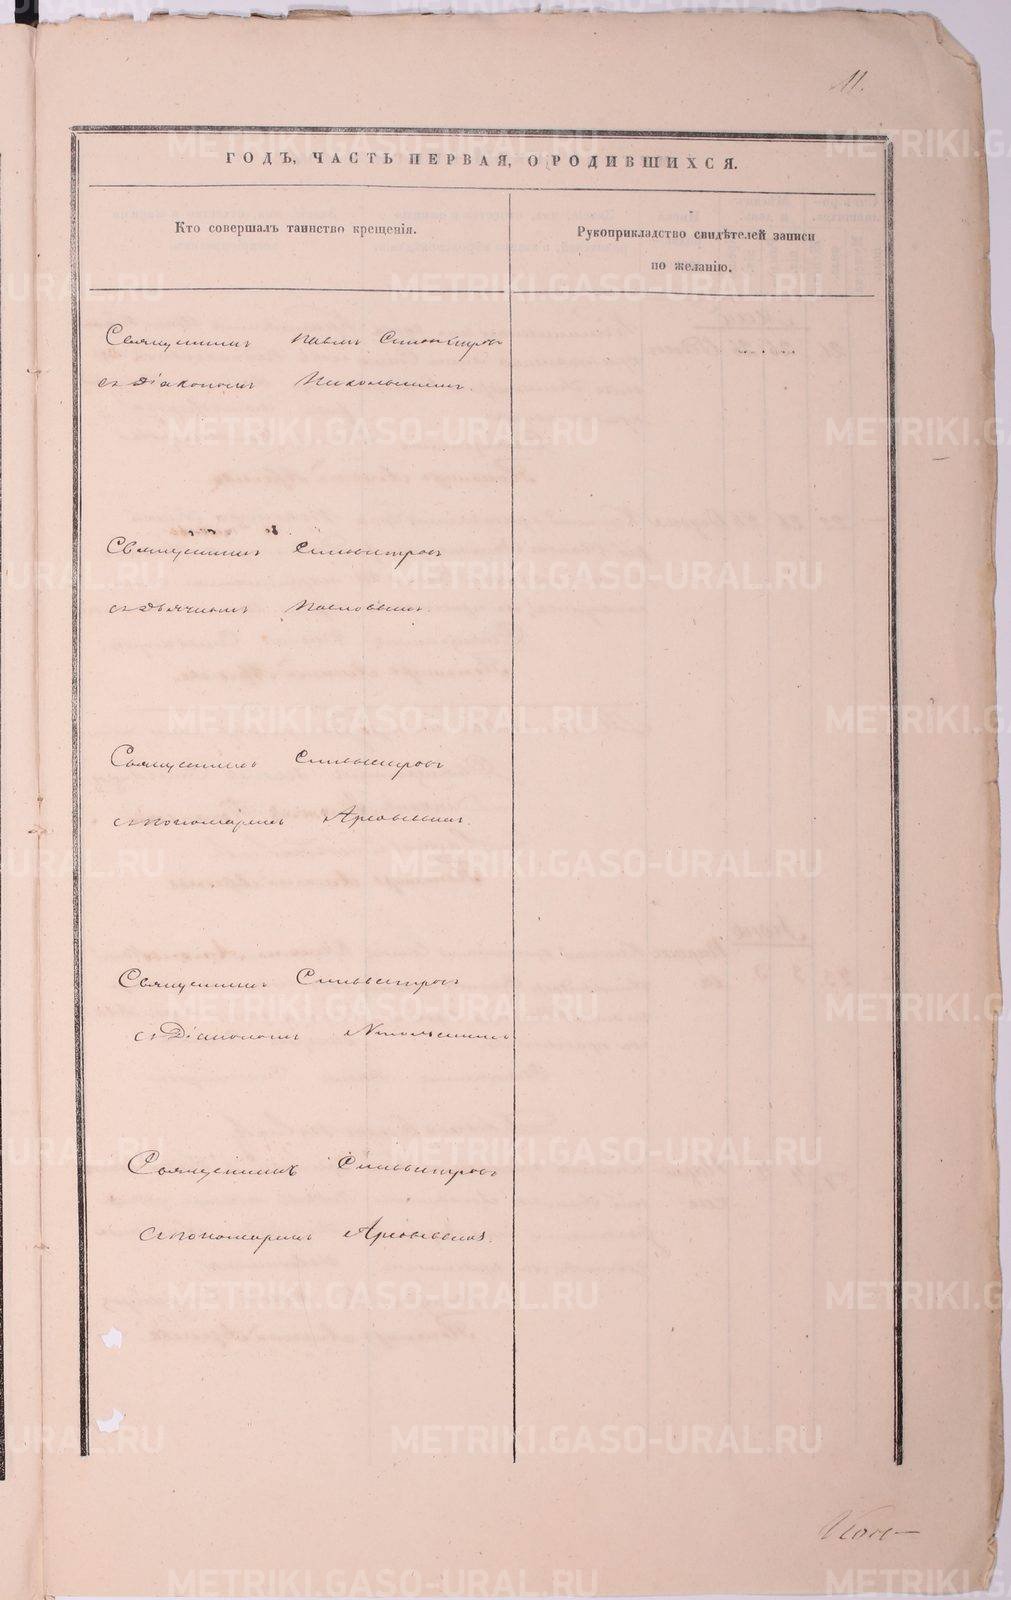 11.
ГОДЪ, ЧАСТЬ ПЕРВАЯ, О РОДИВШИХСЯ.
Кто совершалъ таинство крещенія.
Рукоприкладство свидѣтелей записи
по желанію.
Священникъ Павелъ Сильвестровъ
съ Діакономъ Никольскимъ.
Священникъ Сильвестровъ
съ дьячкомъ Павловымъ.
Священникъ Сильвестровъ
съ пономаремъ
Священникъ Сильвестровъ
съ Діакономъ Никольскимъ
Священникъ Сильвестровъ
съ пономаремъ
METRIKI.GASO-URAL.RU